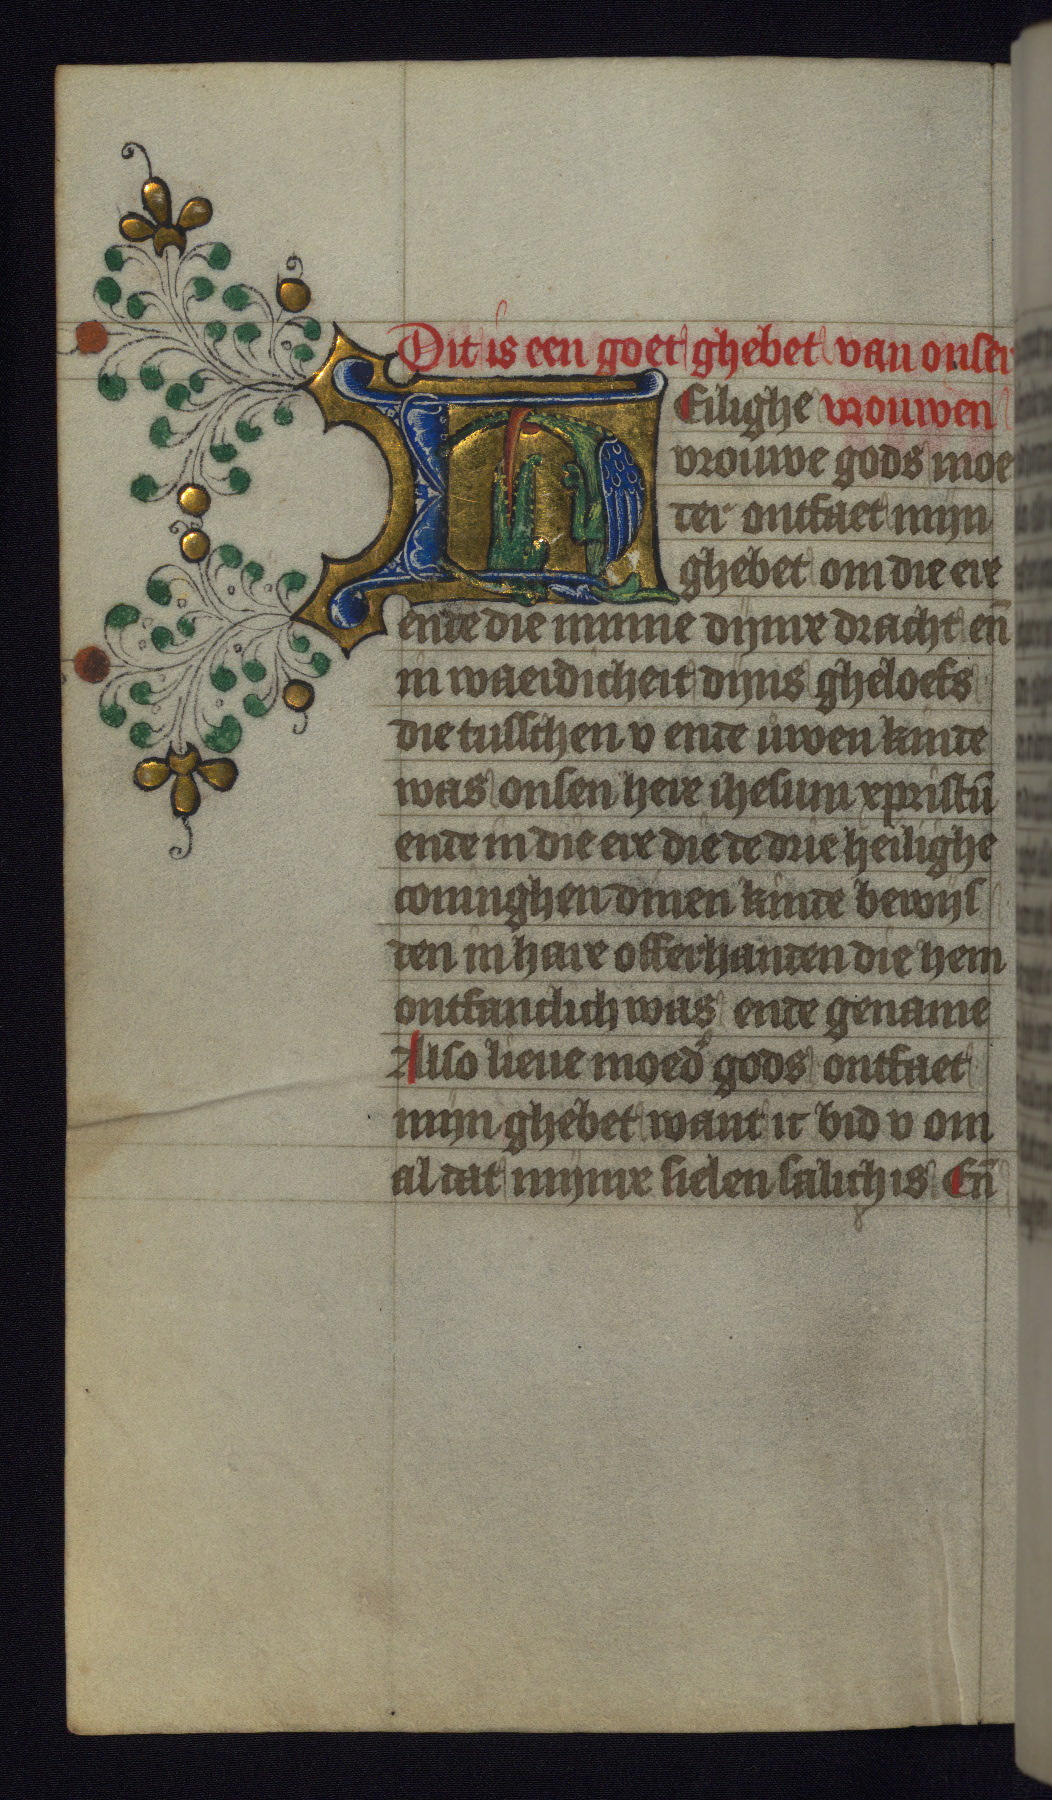 Dit is een goet ghebet van onser
HEilighe vrouwen
vrouwe gods moe
ter ontfaet mijn
ghebet om die ere
ente die minne dijnre dracht en̄
in waerdicheit dijns gheloefs
die tusschen v ente uwen kinte
was onsen here ihesum xpristū
ente in die ere die te drie heilighe
coninghen dinen kinte bewijs
ten in hare offerhanten die hem
ontfanclich was ente gename
Also lieue moed' gods ontfaet
mijn ghebet want ic bid v om
al dat mijnre sielen salich is En̄